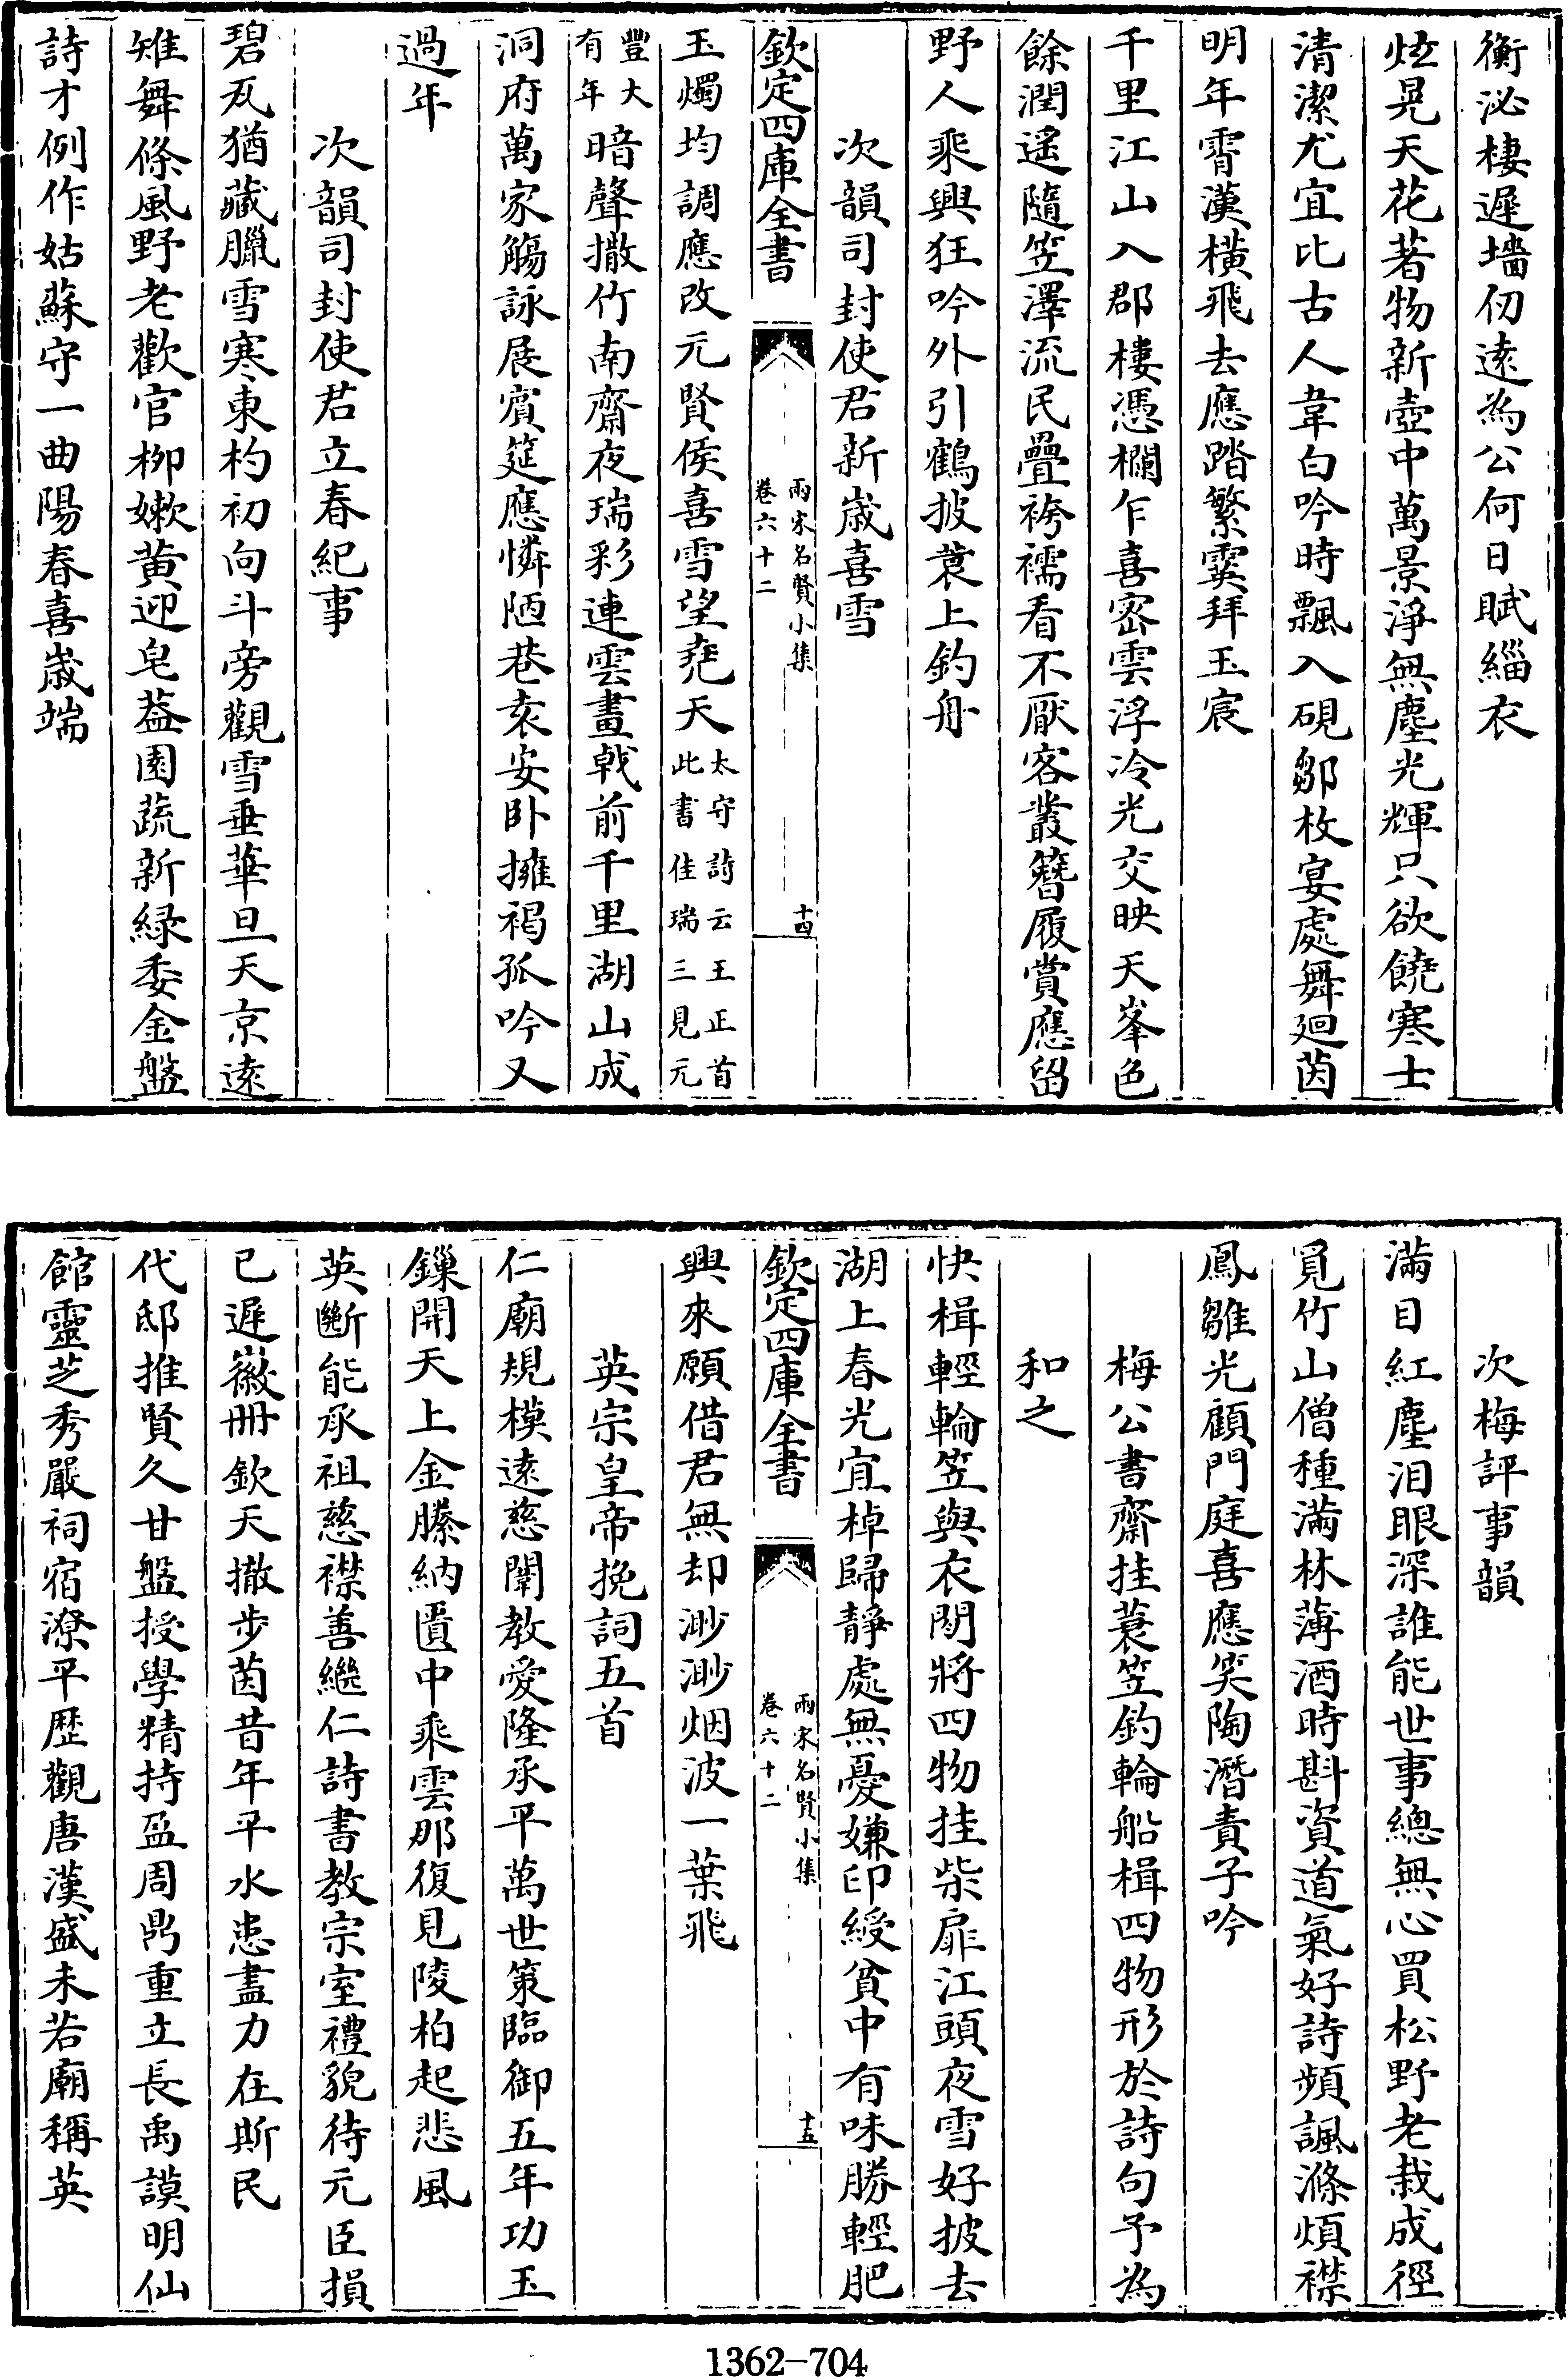 衡泌棲遲墻仞遠為公何日賦緇衣
炫晃天花著物新壺中萬景淨無塵光輝只欲饒寒士
清潔尤宜比古人韋白吟時飄入硯鄒枚宴處舞廻茵
明年霄漢橫飛去應踏繁霙拜玉宸
千里江山入郡樓憑欄乍喜密雲浮冷光交映天峯色
餘潤遙隨笠澤流民疊袴襦看不厭客叢簪履賞應留
野人乘興狂吟外引鶴披蓑上釣舟
次韻司封使君新歲喜雪
欽定四庫全書
兩宋名賢小集
卷六十二
十四
玉燭均調應改元賢侯喜雪望堯天太守詩云王正首
此書佳瑞三見元
豐大
有年暗聲撒竹南齋夜瑞彩連雲畫戟前千里湖山成
洞府萬家觴詠展賓筵應憐陋巷袁安卧擁褐孤吟又
過年
次韻司封使君立春紀事
碧瓦猶藏臘雪寒東杓初向斗旁觀雪垂華旦天京遠
雉舞條風野老歡官柳嫩黄迎皂葢園蔬新緑委金盤
詩才例作姑蘇守一曲陽春喜歲端
次梅評事韻
滿目紅塵泪眼深誰能世事總無心買松野老栽成徑
覓竹山僧種滿林薄酒時斟資道氣好詩頻諷滌煩襟
鳳雛光顧門庭喜應笑陶潛責子吟
梅公書齋挂蓑笠釣輪船楫四物形於詩句予為
和之
快楫輕輪笠與衣閒將四物挂柴扉江頭夜雪好披去
湖上春光宜棹歸靜處無憂嫌印綬貧中有味勝輕肥
欽定四庫全書
兩宋名賢小集
卷六十二
十五
興來願借君無却渺渺烟波一葉飛
英宗皇帝挽詞五首
仁廟規模遠慈闈教愛隆承平萬世策臨御五年功玉
鏁開天上金縢納匱中乘雲那復見陵柏起悲風
英斷能承祖慈襟善繼仁詩書教宗室禮貌待元臣損
已遲徽冊欽天撤步茵昔年平水患盡力在斯民
代邸推賢久甘盤授學精持盈周鼎重立長禹謨明仙
館靈芝秀嚴祠宿潦平歴觀唐漢盛未若廟稱英
1362-704